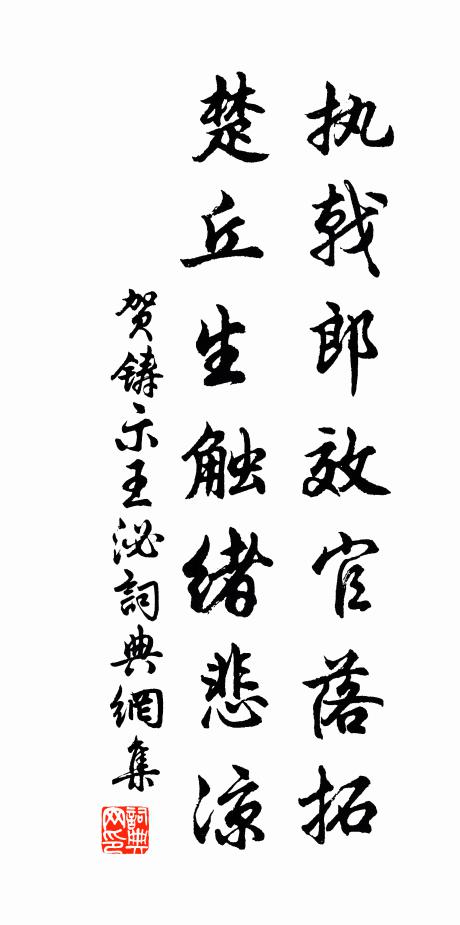 执戟郎效官落拓
楚丘生触绪悲凉
贺铸示王泌詞典網集
詞典
网印